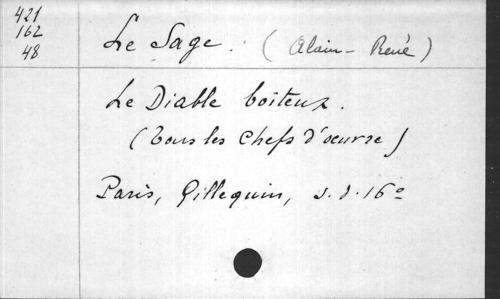 421
162
48
Le Sage. (Alain-René)
Le Diable boiteux.
(Tous les Chefs d'oeuvre)
Paris, Gillequin, s.d. 16º